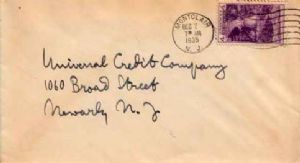 MONTCLAIR
DEC 7
7 30 PM
1935
N. J.
Universal Credit Company
1060 Broad Street
Newark, N. J.